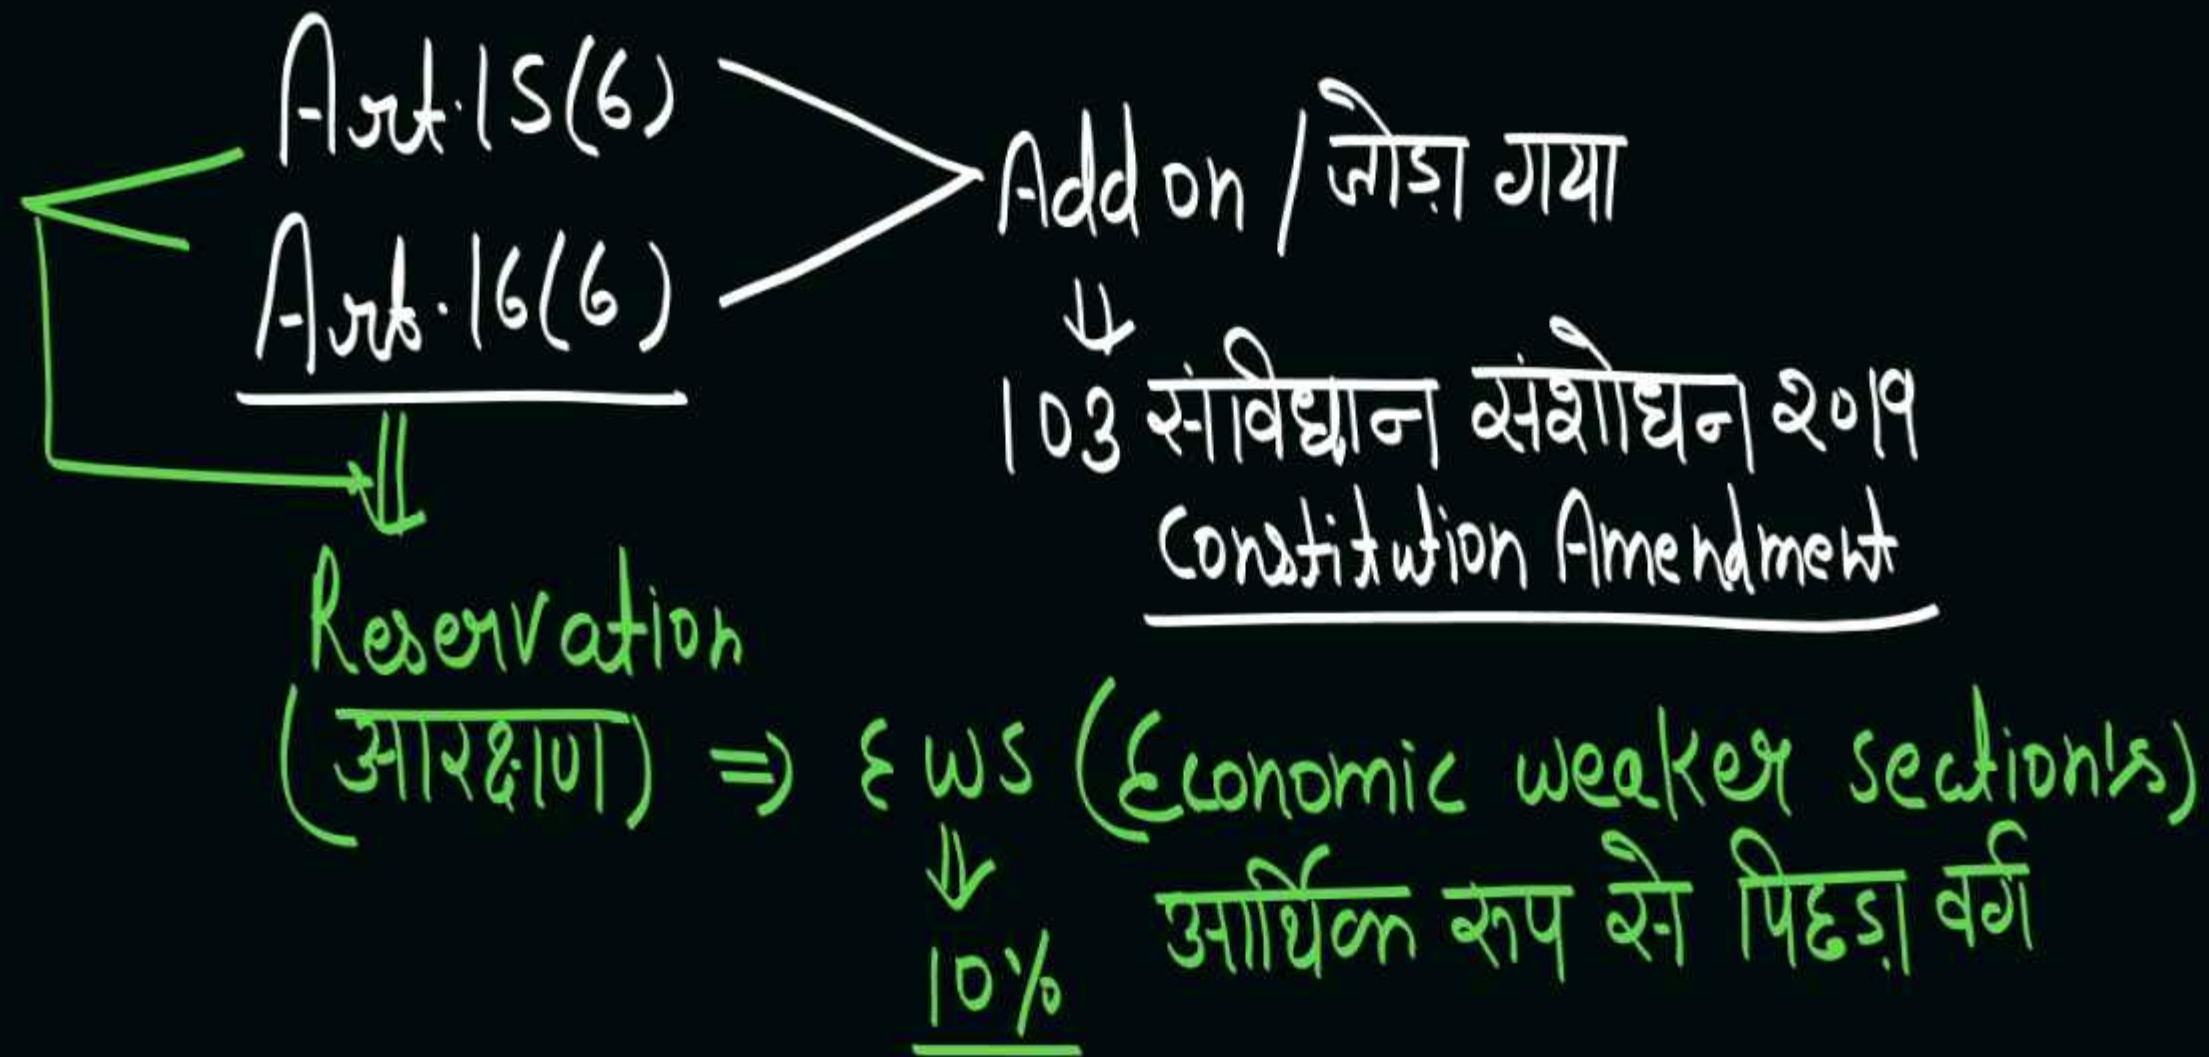 Art. 15(6)
Add on / जोड़ा गया
Art. 16(6)
⇓
103 संविधान संशोधन 2019
Constitution Amendment
Reservation
(आरक्षण) ⇒ EWS (Economic weaker section's)
⇓ आर्थिक रूप से पिछड़ा वर्ग
10%